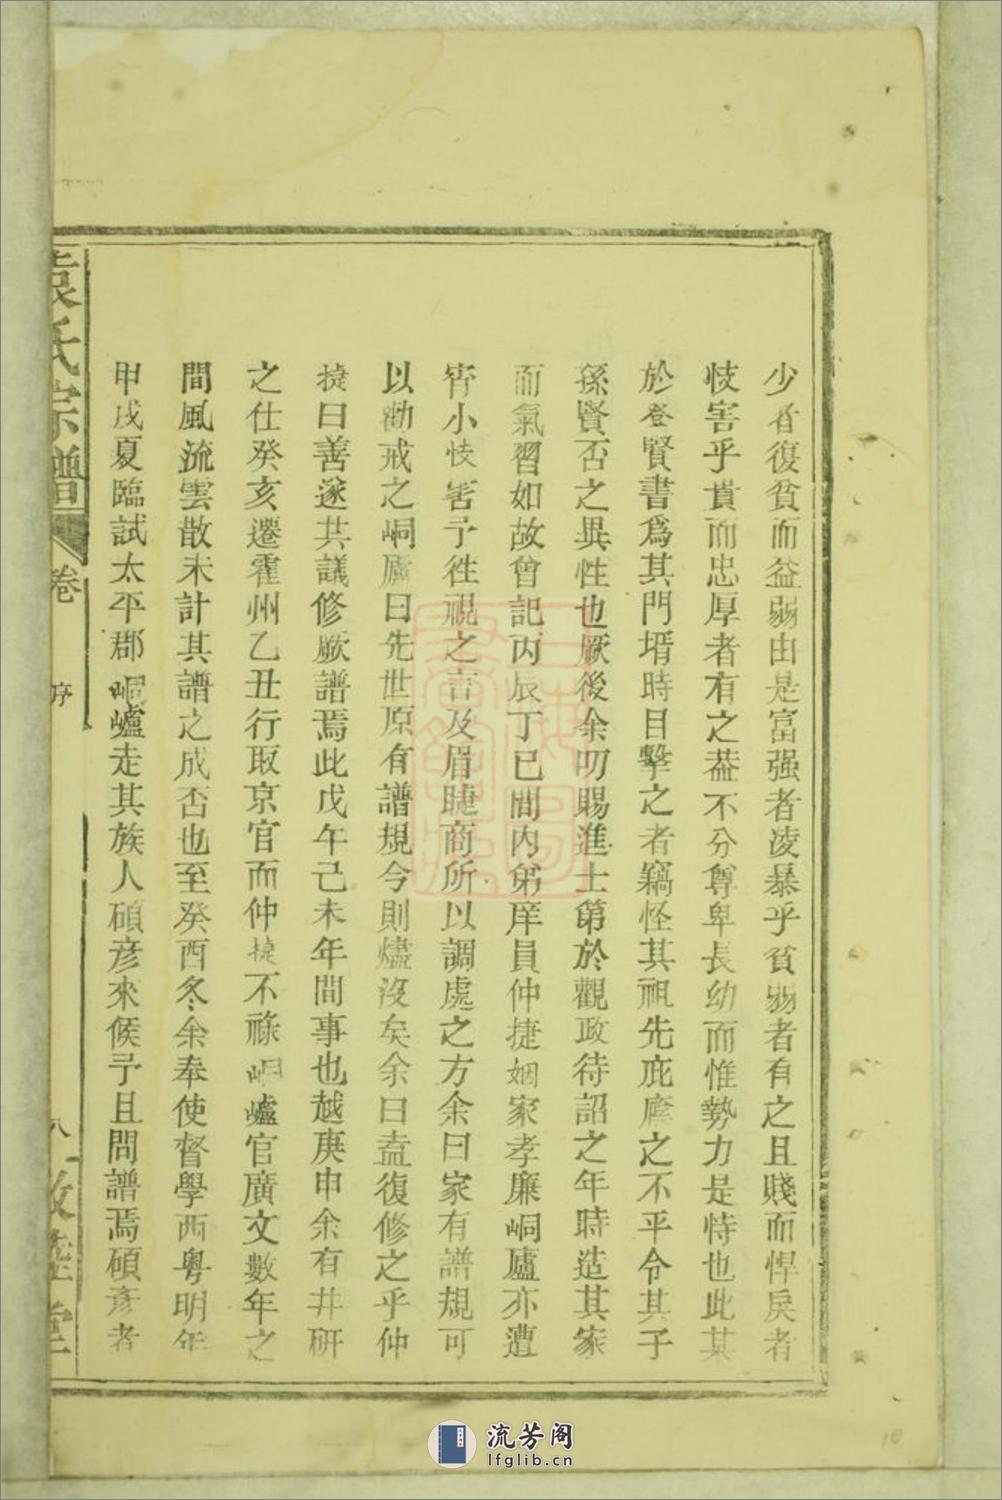 少者復貧而益弱由是富强者凌暴乎貧弱者有之且賤而悍戾者
忮害乎貴而忠厚者有之葢不分尊卑長幼而惟勢力是恃也此其
於登賢書爲其門壻時目擊之者竊怪其祖先庇庥之不平令其子
孫賢否之異性也厥後余叨賜進士第於觀政待詔之年時造其家
而氣習如故曾記丙辰丁巳間內弟庠員仲捷姻家孝廉峒廬亦遭
宵小忮害予徃視之言及眉睫商所以調處之方余曰家有譜規可
以勸戒之峒廬曰先世原有譜規今則燼沒矣余曰盍復修之乎仲
捷曰善遂共議修厥譜焉此戊午己未年間事也越庚申余有井研
之仕癸亥遷霍州乙丑行取京官而仲捷不祿峒嶇官廣文數年之
間風流雲散未計其譜之成否也至癸酉冬余奉使督學西粤明年
甲戌夏臨試太平郡峒嶇走其族人碩彥來候予且問譜焉碩彥者
袁氏宗譜
卷
序
八
敦睦堂
流芳阁
lfglib.cn
10